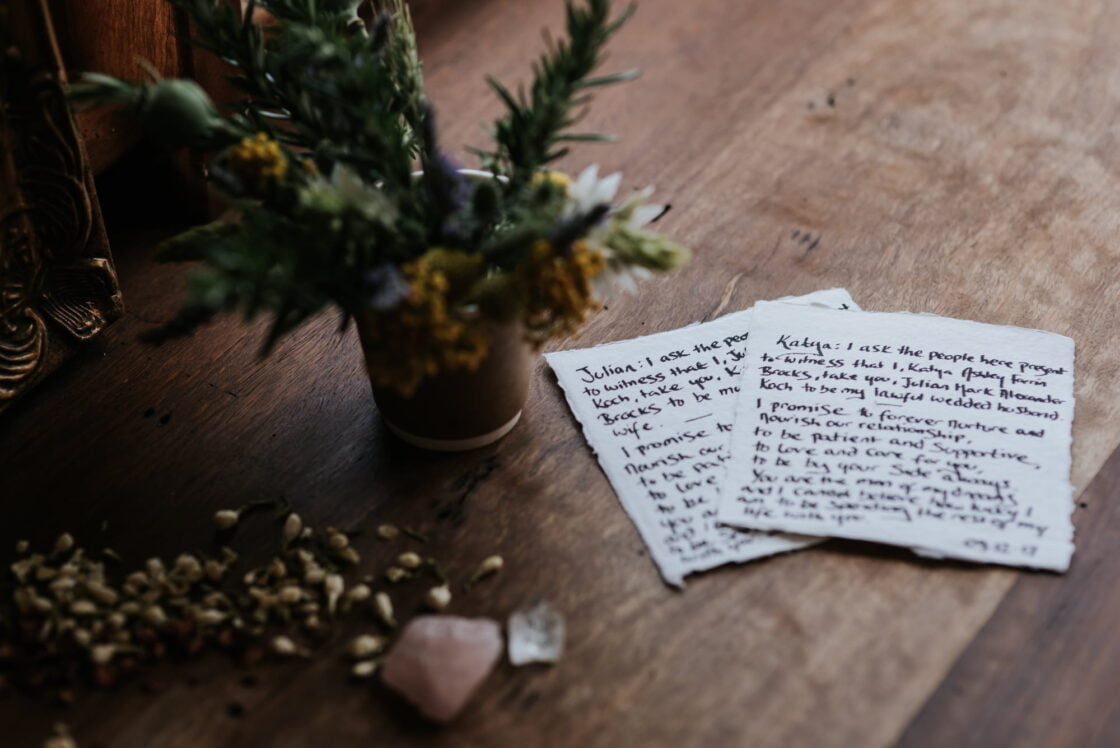 Julian: I ask the peo
to witness that I, Ju
Koch, take you, K
Brocks to be m
wife.
I promise to
Nourish our
to be pat
to love
to be
you a
and I
to be
with you
Katya: I ask the people here present
to witness that I, Katya Ashley Farrin
Brocks, take you, Julian Mark Alexander
Koch to be my lawful wedded husband
I promise to forever nurture and
Nourish our relationship,
to be patient and supportive,
to love and care for you,
to be by your side always
You are the man of my dreams
and I cannot believe how lucky I
am to be spending the rest of my
life with you.
09.12.17